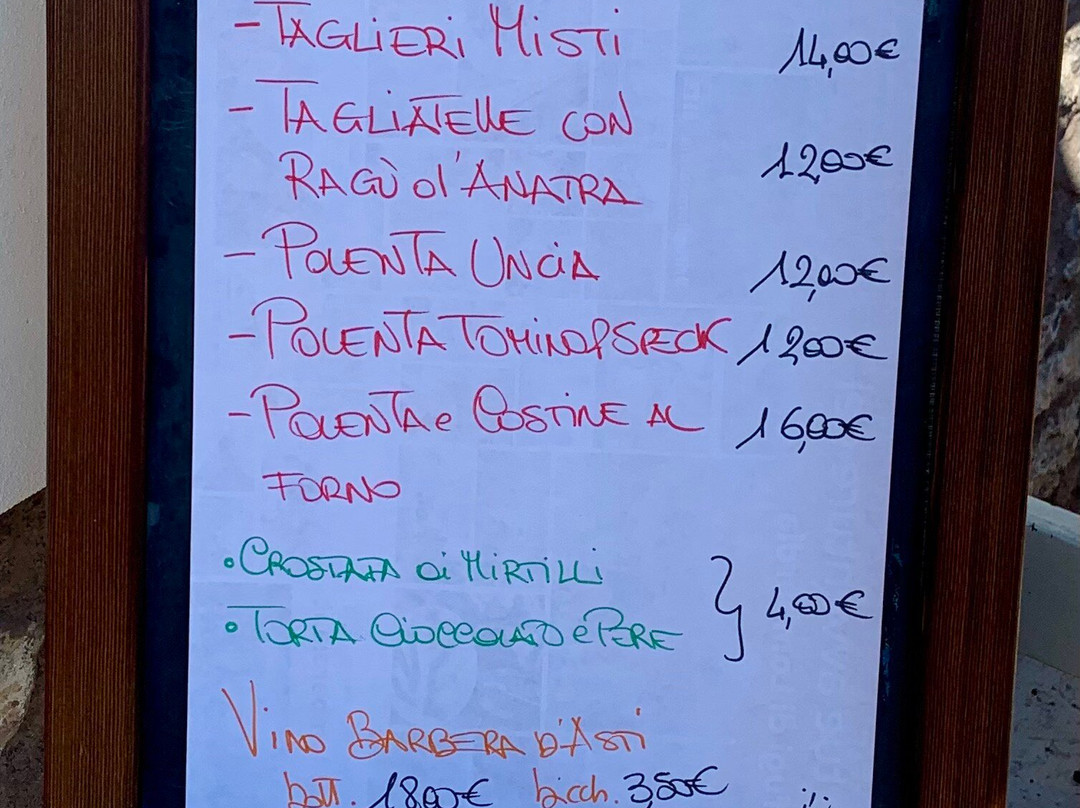 - TAGLIERI MISTI 14,00€
- TAGLIATELLE CON
RAGÙ d'ANATRA 12,00€
- POLENTA UNCIA 12,00€
- POLENTA TOMINO/SPECK 12,00€
- POLENTA e COSTINE AL 16,00€
FORNO
• CROSTATA di MIRTILLI
• TORTA CIOCCOLATO e PERE } 4,00€
VINO BARBERA D'ASTI
bott. 18,00€ bicch. 3,50€